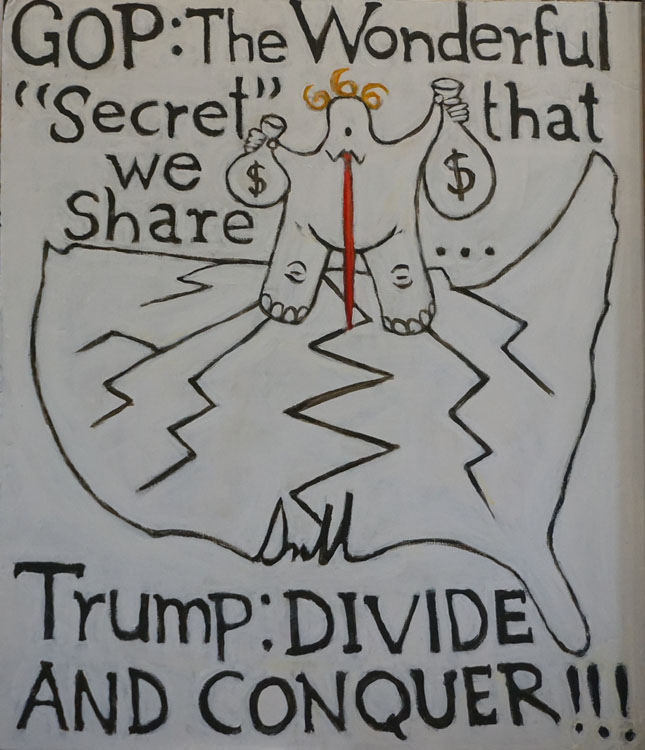 GOP: The Wonderful
666
"Secret" that
we
$ $
Share
...
Trump: DIVIDE
AND CONQUER!!!